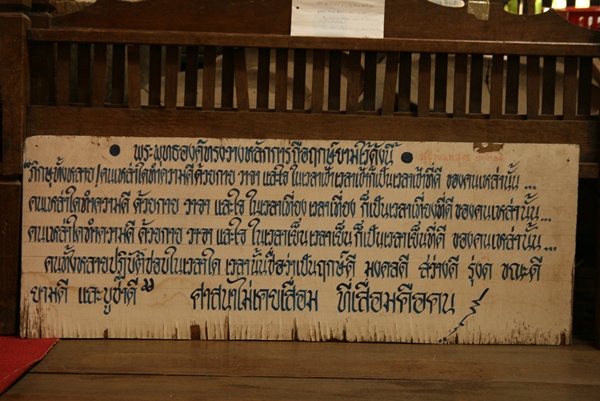 • พระพุทธองค์ทรงวางหลักการถือฤกษ์ยามไว้ดังนี้ •
"ภิกษุทั้งหลาย คนเหล่าใดทำความดีด้วยกาย วาจา และใจ ในเวลาเช้า เวลาเช้าก็เป็นเวลาเช้าที่ดี ของคนเหล่านั้น...
คนเหล่าใดทำความดี ด้วยกาย วาจา และใจ ในเวลาเที่ยง เวลาเที่ยง ก็เป็นเวลาเที่ยงที่ดี ของคนเหล่านั้น...
คนเหล่าใดทำความดี ด้วยกาย วาจา และใจ ในเวลาเย็น เวลาเย็น ก็เป็นเวลาเย็นที่ดี ของคนเหล่านั้น...
คนทั้งหลายปฏิบัติชอบในเวลาใด เวลานั้นชื่อว่าเป็นฤกษ์ดี มงคลดี สว่างดี รุ่งดี ขณะดี
ยามดี และบูชาดี" ศาสนาไม่เคยเสื่อม ที่เสื่อมคือคน